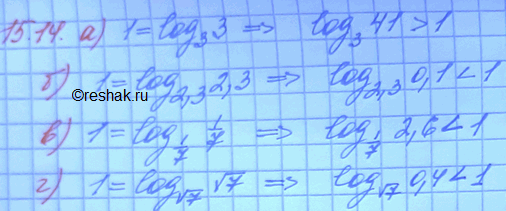 15.14. а) 1 = log₃ 3 => log₃ 41 > 1
б) 1 = log₂,₃ 2,3 => log₂,₃ 0,1 < 1
©reshak.ru
в) 1 = log_{1/7} 1/7 => log_{1/7} 2,6 < 1
г) 1 = log_{√7} √7 => log_{√7} 0,4 < 1